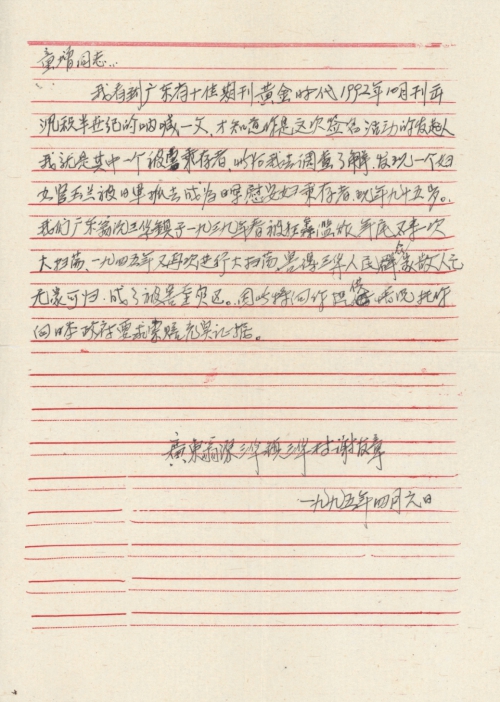 童增同志:
我看到广东省十佳期刊黄金时代1992年10月刊再
沉积半世纪的呐喊一文,才知悉你是这次签名活动的发起人
我就是其中一个被害幸存者,以后我去调查了解,发现一个妇
女管玉兰被日军抓去成为日军慰安妇幸存者,现年九十五岁。
我们广东翁源三华镇于一九三九年春被狂轰滥炸,年底又来一次
大扫荡,一九四五年又再次进行大扫荡,害得三华人民家散人亡
无家可归,成了被害重灾区。因此特向你提供情况托你
向日本政府要求索赔充实证据。
廣東翁源三华镇三华村谢
一九九五年四月六日